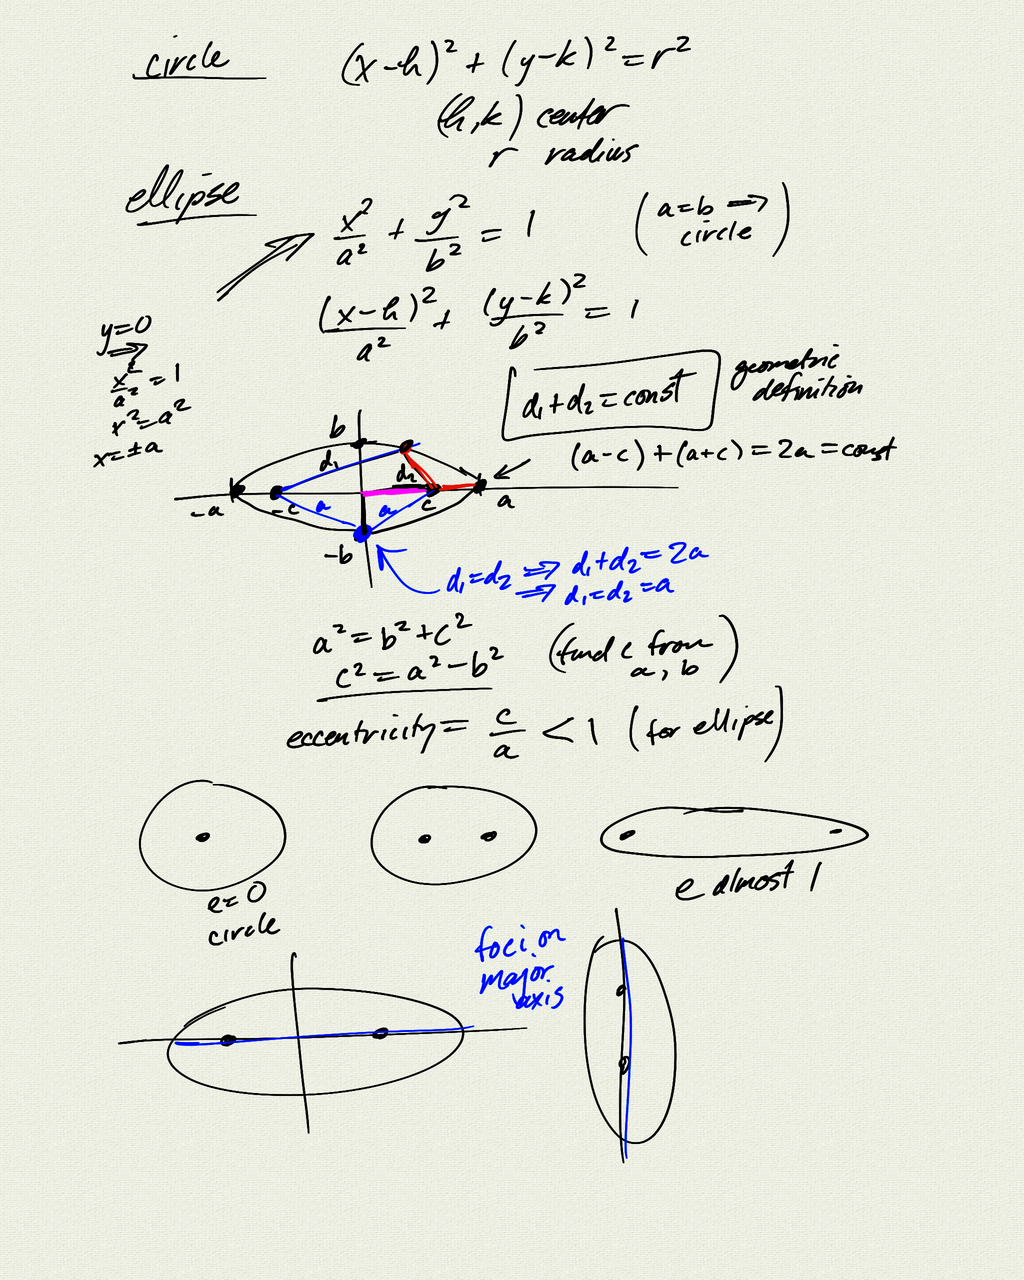 circle
(x-h)² + (y-k)² = r²
(h,k) center
r radius
ellipse
x²/a² + y²/b² = 1
(a=b ⟹ circle)
(x-h)²/a² + (y-k)²/b² = 1
y=0
⟹
x²/a² = 1
x² = a²
x = ±a
d₁+d₂ = const
geometric
definition
(a-c) + (a+c) = 2a = const
b
d₁
d₂
-a
-c
a
a
c
a
-b
d₁=d₂ ⟹ d₁+d₂=2a
⟹ d₁=d₂=a
a² = b²+c²
c² = a²-b²
(find c from
a, b)
eccentricity = c/a < 1 (for ellipse)
e=0
circle
e almost 1
foci on
major
axis